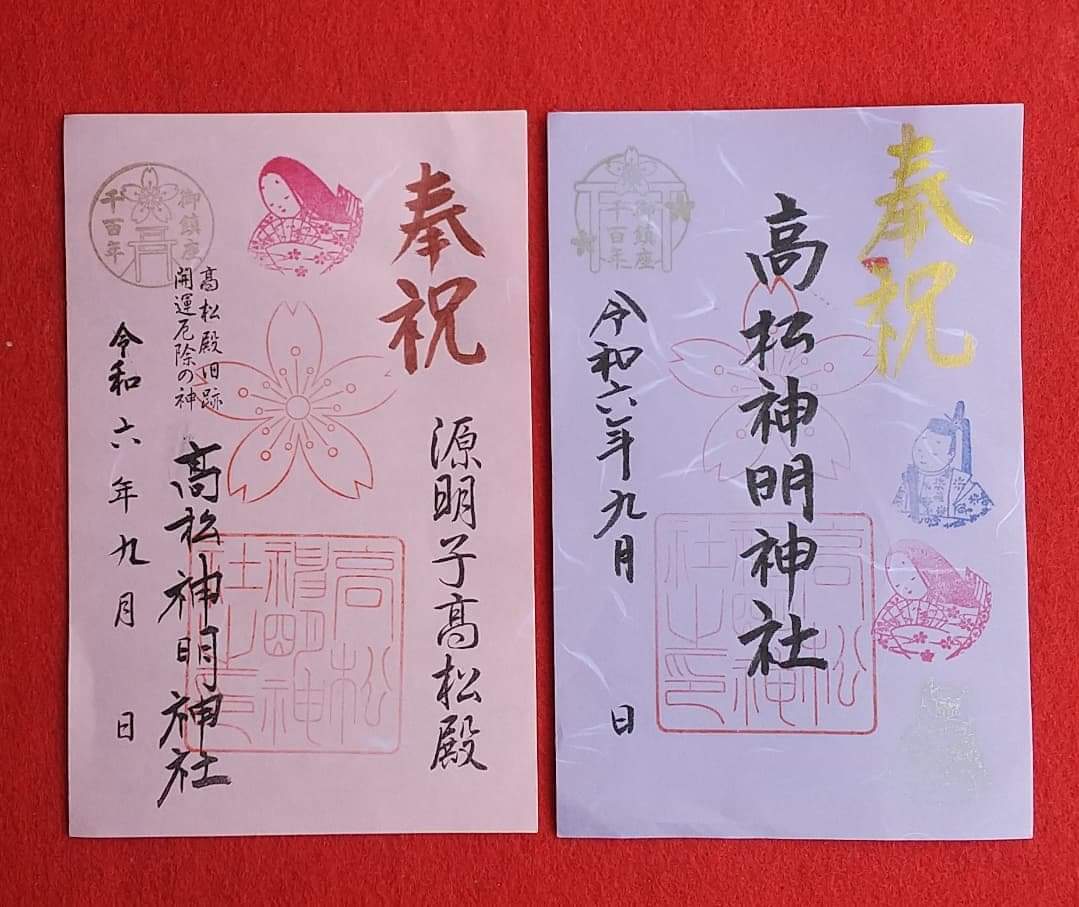 奉祝
源明子高松殿
高松殿旧跡
開運厄除の神
高松神明神社
令和六年九月　日
御鎮座
千百年
高松
神明神
社之印
奉祝
高松神明神社
令和六年九月　日
御鎮座
千百年
高松
神明神
社之印